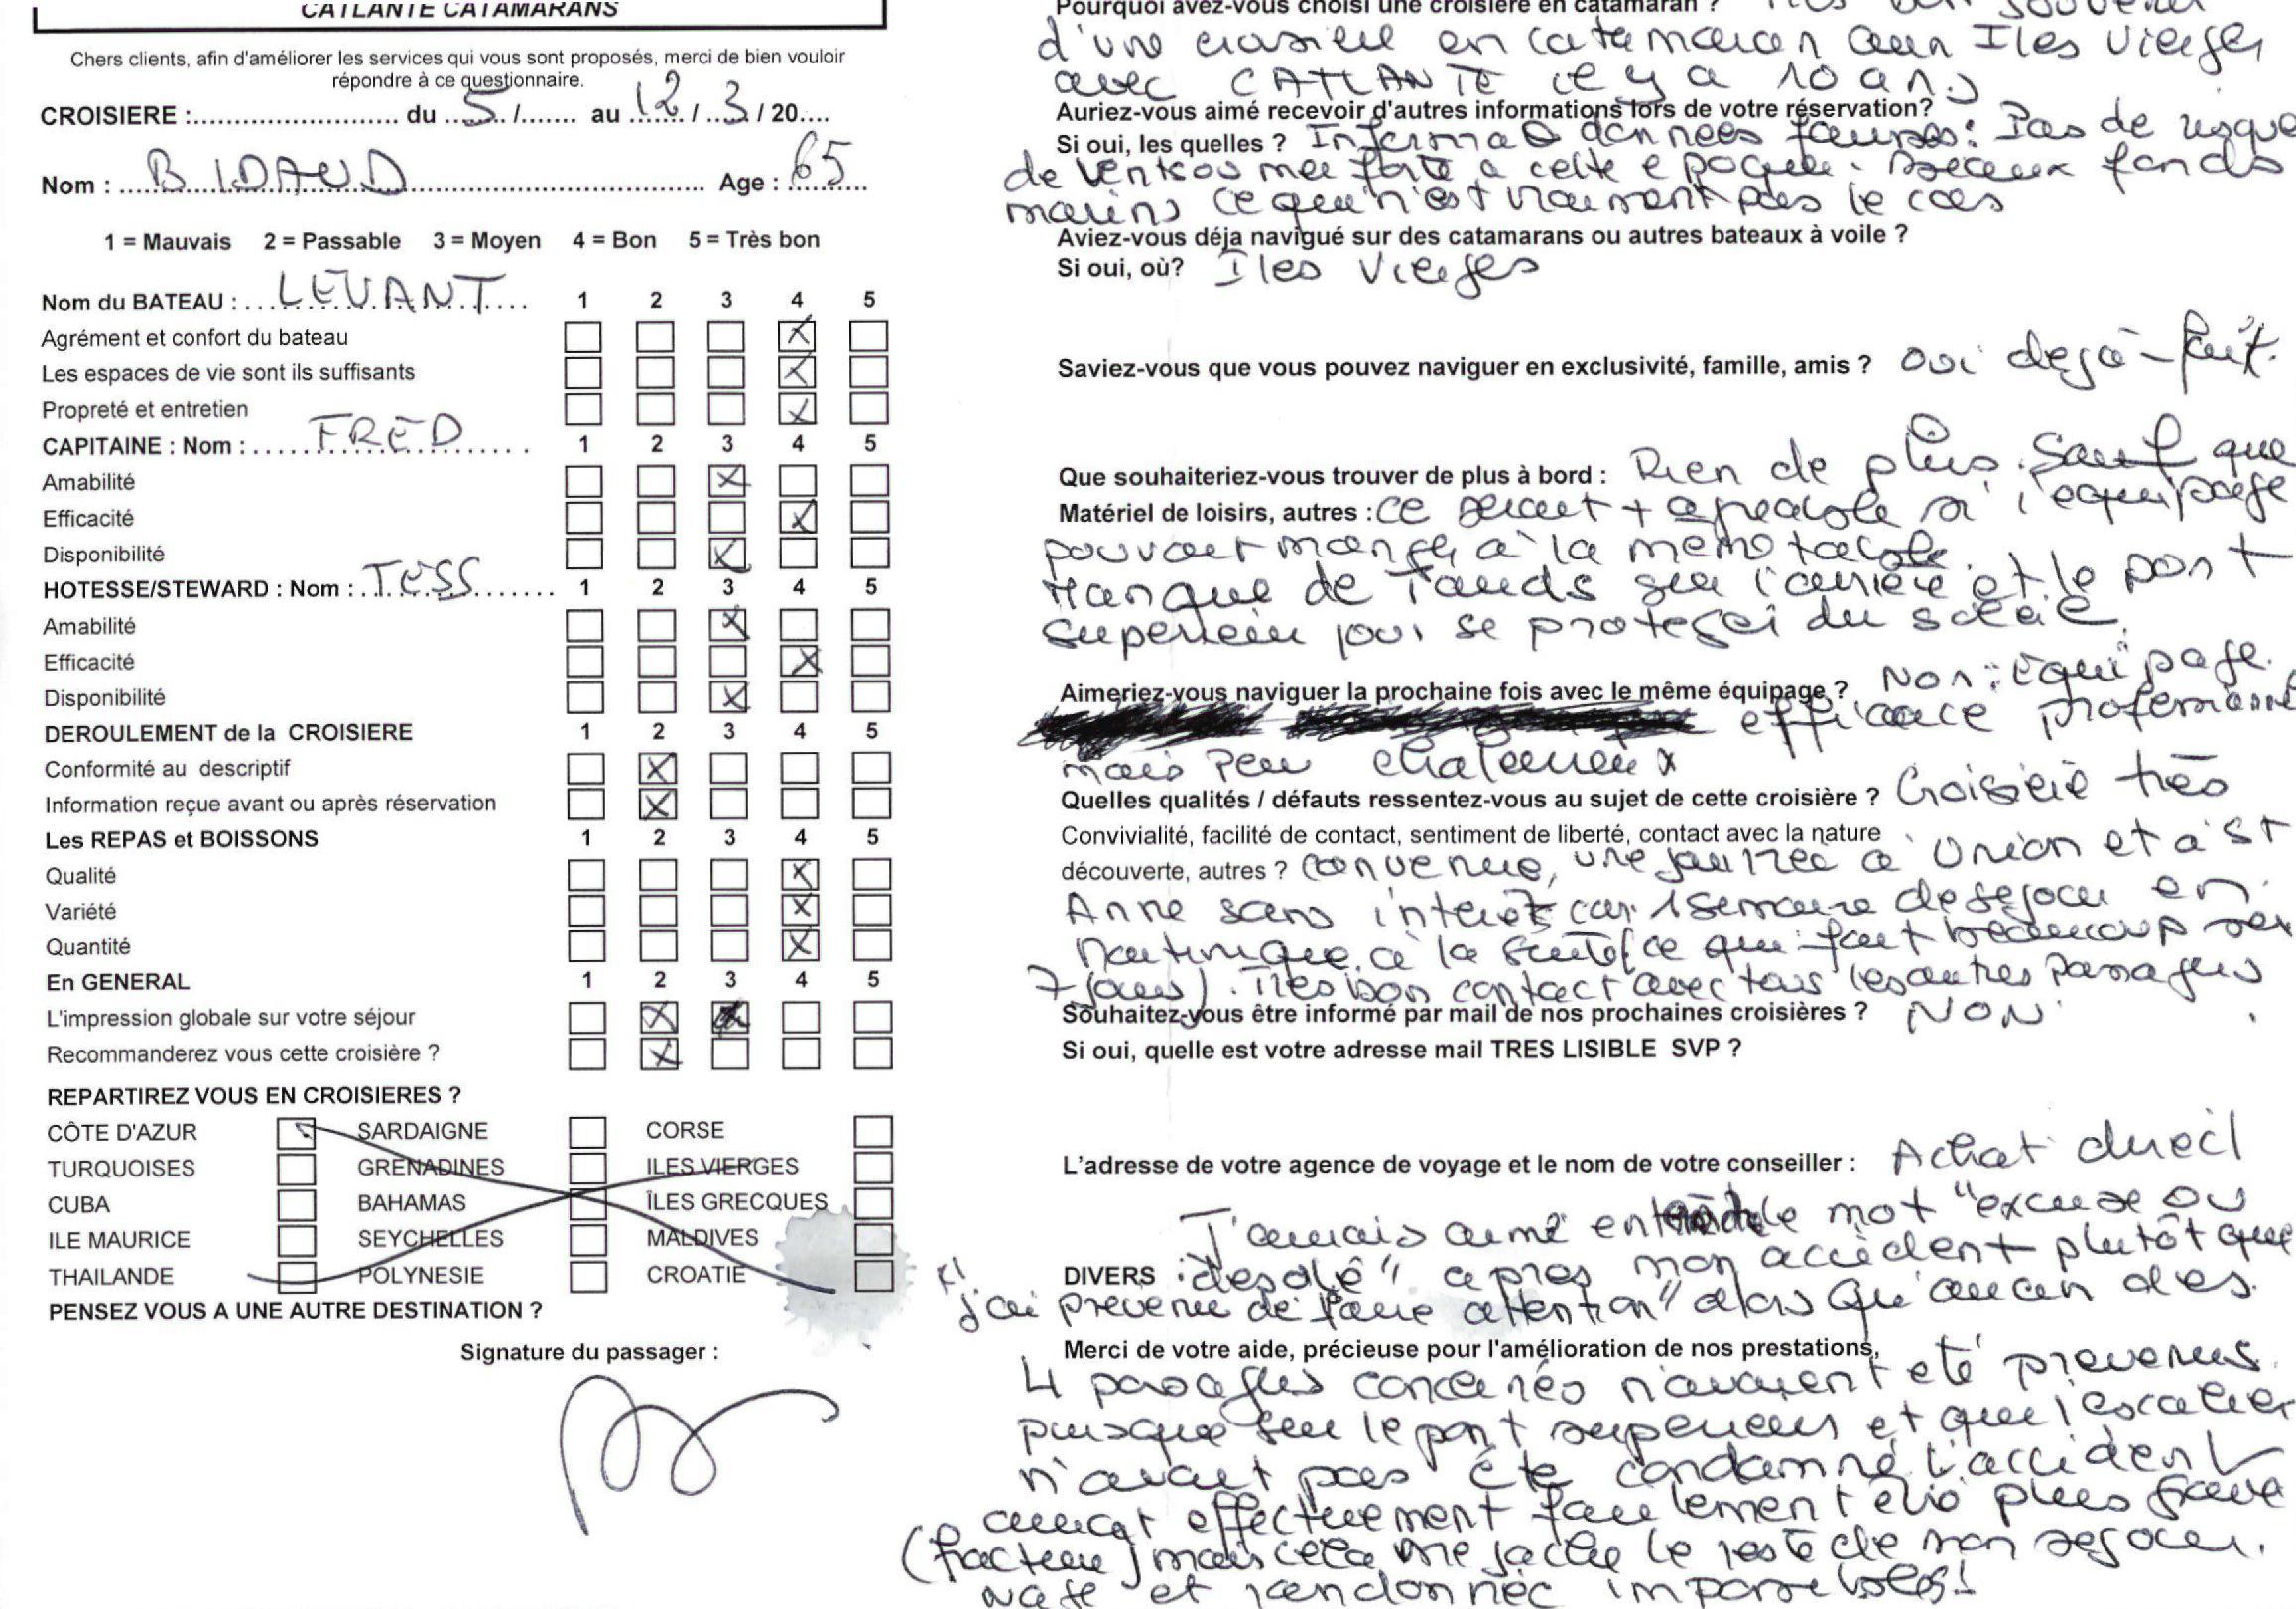 CATLANTE CATAMARANS
Chers clients, afin d'améliorer les services qui vous sont proposés, merci de bien vouloir
répondre à ce questionnaire.
CROISIERE :........................... du ...5.. /....... au ..12.. / ..3../ 20....
Nom : ....BIDAUD.... Age : 65
1 = Mauvais 2 = Passable 3 = Moyen 4 = Bon 5 = Très bon
Nom du BATEAU : ...LEVANT.... 1 2 3 4 5
Agrément et confort du bateau X
Les espaces de vie sont ils suffisants X
Propreté et entretien X
CAPITAINE : Nom : ......FRED...... 1 2 3 4 5
Amabilité X
Efficacité X
Disponibilité X
HOTESSE/STEWARD : Nom : .TESS....... 1 2 3 4 5
Amabilité X
Efficacité X
Disponibilité X
DEROULEMENT de la CROISIERE 1 2 3 4 5
Conformité au descriptif X
Information reçue avant ou après réservation X
Les REPAS et BOISSONS 1 2 3 4 5
Qualité X
Variété X
Quantité X
En GENERAL 1 2 3 4 5
L'impression globale sur votre séjour X
Recommanderez vous cette croisière ? X
REPARTIREZ VOUS EN CROISIERES ?
CÔTE D'AZUR SARDAIGNE CORSE
TURQUOISES GRENADINES ILES VIERGES
CUBA BAHAMAS ÎLES GRECQUES
ILE MAURICE SEYCHELLES MALDIVES
THAILANDE POLYNESIE CROATIE
PENSEZ VOUS A UNE AUTRE DESTINATION ?
Signature du passager :
Pourquoi avez-vous choisi une croisière en catamaran ? Très bon souvenir
d'une croisière en catamaran aux Iles Vierges
avec CATLANTE il y a 10 ans
Auriez-vous aimé recevoir d'autres informations lors de votre réservation?
Si oui, les quelles ? données fausses : Pas de risque
de vent ou mer forte a cette epoque. fonds
marins ce qui n'est vraiment pas le cas
Aviez-vous déja navigué sur des catamarans ou autres bateaux à voile ?
Si oui, où? Iles Vierges
Saviez-vous que vous pouvez naviguer en exclusivité, famille, amis ? Oui dejà-fait.
Que souhaiteriez-vous trouver de plus à bord : Rien de plus. Sauf que
Matériel de loisirs, autres : ce serait + agréable si l'equipage
pouvait manger à la meme table.
Manque de Tauds sur l'arrière et le pont
superieur pour se proteger du soleil.
Aimeriez-vous naviguer la prochaine fois avec le même équipage ? Non : Equipage
efficace
mais peu chaleureux
Quelles qualités / défauts ressentez-vous au sujet de cette croisière ? Croisière très
Convivialité, facilité de contact, sentiment de liberté, contact avec la nature
découverte, autres ? convenue, une journée à Union et à St
Anne sans interêt car 1 semaine de sejour en
Martinique à la suite (ce qui fait beaucoup sur
7 jours). Très bon contact avec tous les autres passagers
Souhaitez-vous être informé par mail de nos prochaines croisières ? NON
Si oui, quelle est votre adresse mail TRES LISIBLE SVP ?
L'adresse de votre agence de voyage et le nom de votre conseiller : Achat direct
J'aurais aimé le mot "excuse ou
DIVERS : desolé" apres mon accident plutôt que
"j'ai prevenu de faire attention" alors qu'aucun des
Merci de votre aide, précieuse pour l'amélioration de nos prestations,
4 passagers concernés n'avaient eté prevenus
puisque sur le pont superieur et que l'escalier
n'avait pas été condamné. L'accident
aurait effectivement facilement être plus grave
(fracture) mais cela me gache le reste de mon sejour.
nage et randonnée impossibles!